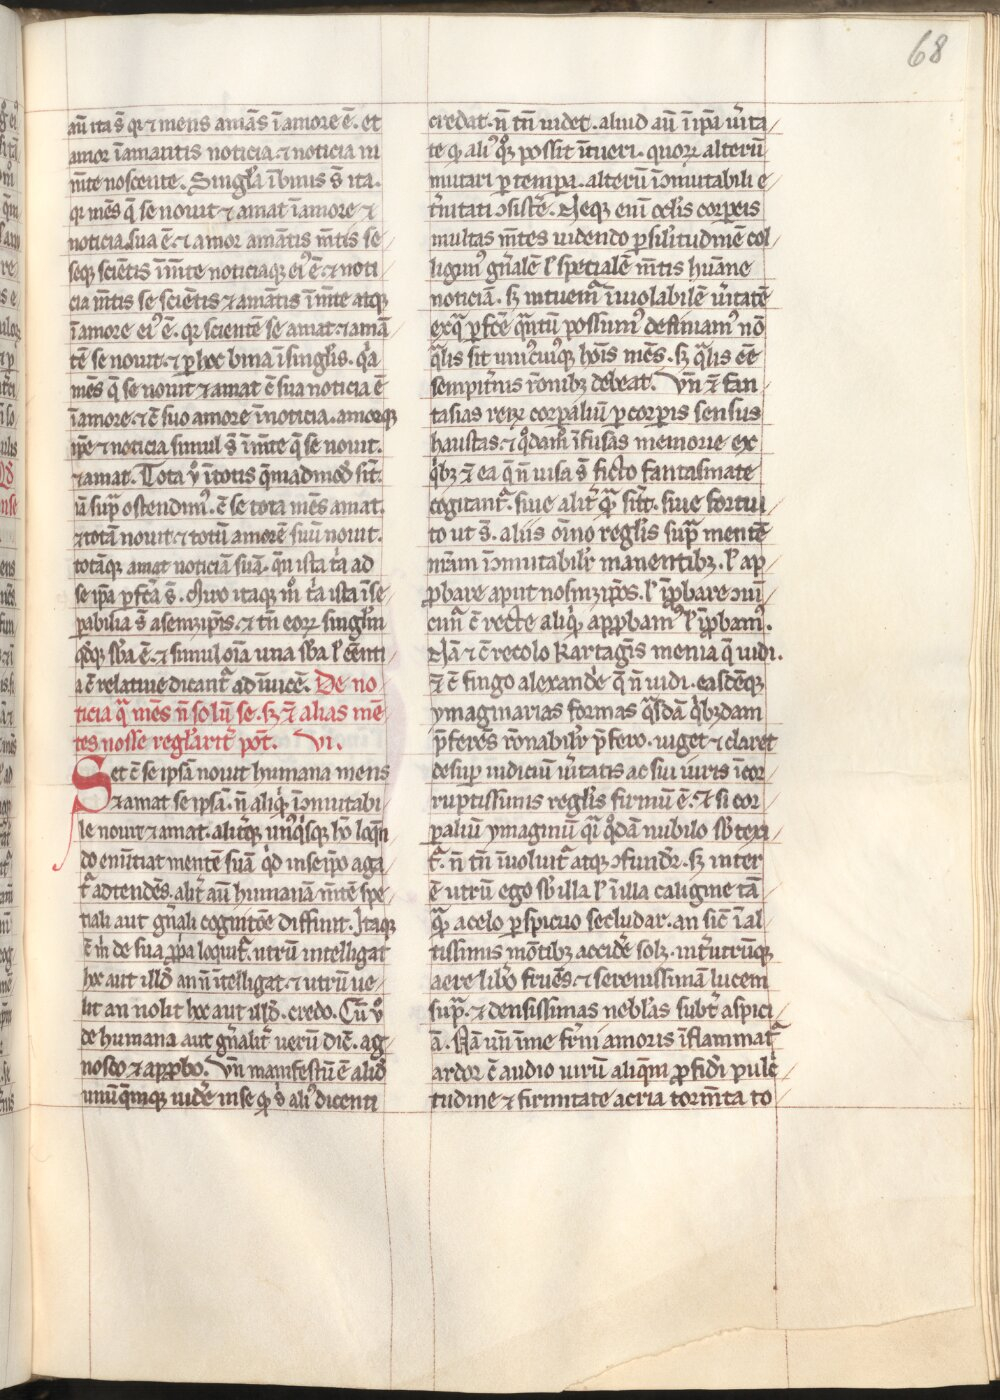 68
aū ita s̄ qr ⁊ mens amās ī amore ē. et
amor ī amantis noticia. ⁊ noticia in
m̄te noscente. Singl̓a ī binis s̄ ita.
qr mēs q̄ se nouit ⁊ amat ī amore ⁊
noticia sua ē. ⁊ amor amātis m̄tis se
seqꝫ sciētis ī m̄te noticiaqꝫ ei᷒ ē. ⁊ noti
cia m̄tis se sciētis ⁊ amātis ī m̄te atqꝫ
ī amore ei᷒ ē. qr scientē se amat. ⁊ amā
tē se nouit. ⁊ p̲ hoc bina ī singl̓is. q̓a
mēs q̄ se nouit ⁊ amat ē sua noticia ē
ī amore. ⁊ c̄ suo amore ī noticia. amorqꝫ
ip̄e ⁊ noticia simul s̄ ī m̄te q̄ se nouit.
⁊ amat. Tota v̊ ī totis q̄madmod̄ sīt.
iā sup̲ᷓ ostendim᷒. c̄ se totā mēs amat.
⁊ totā nouit. ⁊ totū amorē suū nouit.
totāqꝫ amat noticiā suā. qn̄ ista t̓a ad
se ip̄a p̲fc̄a s̄. Miro itaqꝫ m̊ t̓a ista īse
p̲abilia s̄ a semꝫip̄is. ⁊ tn̄ eoꝝ singl̓m
q̊dqꝫ sb̓a ē. ⁊ simul oīa una sb̓a l̓ cēnti
a c̄ relatiue dicant᷑ ad īuicē. De no
ticia qᷓ mēs n̄ solū se. sꝫ ⁊ alias mē
tes nosse regl̓arit᷑ pōt. vi.
Set c̄ se ipsā nouit humana mens
⁊ amat se ipsā. n̄ aliq̓d īꝯmutabi
le nouit ⁊ amat. alit̓qꝫ unq̓sqꝫ hō loqn̄
do enūtiat mentē suā q̓d in se ip̄o aga
t᷑ adtendēs. alit̓ aū humanā m̄tē spe
tiali aut gn̄ali cognitōe diffinit. Itaqꝫ
c̄ m̓ de sua ꝓp̓a loquit᷑. utrū intelligat
hoc aut illd̄ an n̄ ītelligat. ⁊ utrū ue
lit an nolit hoc aut illd̄. credo. Cū v̊
de humana aut gn̄alit̓ uerū dic̄. ag
nosco ⁊ app̲bo. Vn̄ manifestū ē aliđ
unūqēmqꝫ uid̓e in se qđ s̓ ali᷒ dicenti
credat. n̄ tn̄ uidet. aliud aū ī ip̄a u̓ita
te qđ ali᷒ q̊ꝫ possit ītueri. quoꝝ alterū
mutari p̲ tempa. alterū īꝯmutabili e
t̓nitati ꝯsistē̓. Neqꝫ enī ocl̓is corp̲eis
multas m̄tes uidendo p̲ silitudinē col
ligim᷒ gn̄alē l̓ spetialē m̄tis hūane
noticiā. sꝫ intuem᷑ īuiolabilē u̓itatē
ex qᷓ p̲fc̄e qᷓntū possum᷒ definiam᷒ nō
qᷓlis sit uni᷒cui᷒qꝫ hōis mēs. sꝫ qᷓlis ēē
sempit̓nis rōnibꝫ debeat. Vn̄ ⁊ fan
tasias reꝝ corpaliū p̲ corp̲is sensus
haustas. ⁊ q̊dam᷒ īfusas memorie ex
q̓bꝫ ⁊ ea q̄ n̄ uisa s̄ ficto fantasmate
cogitant᷑. siue alit̓ qᷓ sīt. siue fortui
to ut s̄. aliis oīno regl̓is sup̲ᷓ mentē
nr̄am īꝯmutabilr̓ manentibꝫ. l̓ ap
ꝓbare aput nosmꝫip̄os. l̓ īꝓbare ꝯui
cim᷑ c̄ recte aliq̓d appbam᷒ l̓ īpbam᷒.
Nā ⁊ c̄ recolo Kartagīs menia q̄ uidi.
⁊ c̄ fingo alexand̓e q̄ n̄ uidi. easdēqꝫ
ymaginarias formas qᷓsdā q̓bꝫdam
p̄ferēs rōnabilr̓ p̄fero. uiget ⁊ claret
desup̲ iudiciū u̓itatis ac sui iuris īcor
ruptissimis regl̓is firmū ē. ⁊ si cor
p̲aliū ymaginū qᷓi q̊dā nubilo sb̓texi
t᷑. n̄ tn̄ īuoluit᷑ atqꝫ ꝯfundit᷑. sꝫ inter
ē utrū ego sb̓ illa l̓ ī illa caligine tā
qᷓ a celo p̲spicuo secludar. an sic̄ ī al
tissimis mōtibꝫ accid̓e solꝫ. int̓ utrūqꝫ
aere lib̓o fruēs. ⁊ serenissimā lucem
supᷓ. ⁊ densissimas nebl̓as subt̓ aspici
ā. Nā un̄ ī me fr̄ni amoris īflammat᷑
ardor c̄ audio uirū aliqm̄ ꝓ fid̓i pulc̓
tudine ⁊ firmitate acria torm̄ta to